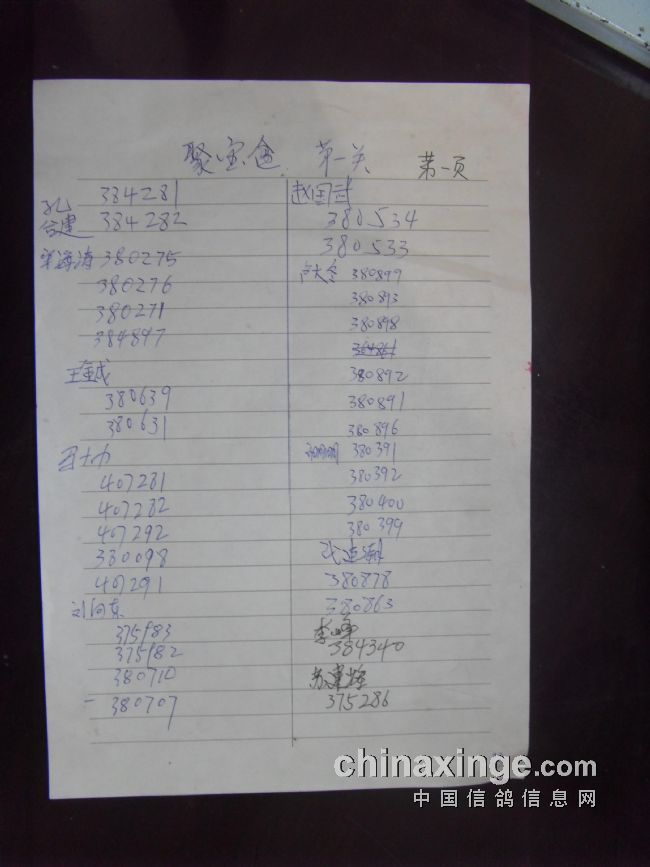 聚宝盆 第一关 第一页
孔
384281
合建 384282
380275
380276
380271
384847
王金成
380639
380631
407281
407282
407292
380098
407291
刘向东
375983
375982
380710
380707
赵国武
380534
380533
卢大冬 380899
380893
380898
380892
380891
380896
380391
380392
380400
380399
380878
380863
李峰
384340
苏建辉
375286
chinaxinge.com
中国信鸽信息网